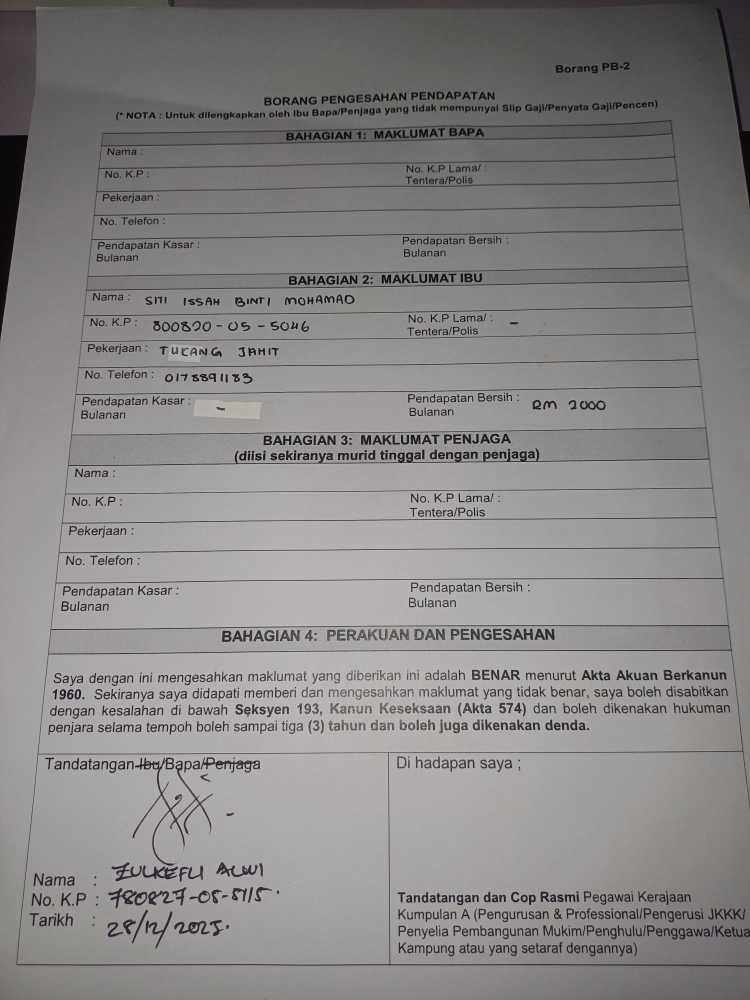 Borang PB-2
BORANG PENGESAHAN PENDAPATAN
(* NOTA : Untuk dilengkapkan oleh Ibu Bapa/Penjaga yang tidak mempunyai Slip Gaji/Penyata Gaji/Pencen)
BAHAGIAN 1: MAKLUMAT BAPA
Nama :
No. K.P : No. K.P Lama/ :
Tentera/Polis
Pekerjaan :
No. Telefon :
Pendapatan Kasar : Pendapatan Bersih :
Bulanan Bulanan
BAHAGIAN 2: MAKLUMAT IBU
Nama : SITI ISSAH BINTI MOHAMAD
No. K.P : 800820-05-5046 No. K.P Lama/ : -
Tentera/Polis
Pekerjaan : TUKANG JAHIT
No. Telefon : 0178891183
Pendapatan Kasar : - Pendapatan Bersih : RM 2000
Bulanan Bulanan
BAHAGIAN 3: MAKLUMAT PENJAGA
(diisi sekiranya murid tinggal dengan penjaga)
Nama :
No. K.P : No. K.P Lama/ :
Tentera/Polis
Pekerjaan :
No. Telefon :
Pendapatan Kasar : Pendapatan Bersih :
Bulanan Bulanan
BAHAGIAN 4: PERAKUAN DAN PENGESAHAN
Saya dengan ini mengesahkan maklumat yang diberikan ini adalah BENAR menurut Akta Akuan Berkanun
1960. Sekiranya saya didapati memberi dan mengesahkan maklumat yang tidak benar, saya boleh disabitkan
dengan kesalahan di bawah Seksyen 193, Kanun Keseksaan (Akta 574) dan boleh dikenakan hukuman
penjara selama tempoh boleh sampai tiga (3) tahun dan boleh juga dikenakan denda.
Tandatangan Ibu/Bapa/Penjaga
Nama : ZULKEFLI ALWI
No. K.P : 780827-05-5115.
Tarikh : 28/12/2025.
Di hadapan saya ;
Tandatangan dan Cop Rasmi Pegawai Kerajaan
Kumpulan A (Pengurusan & Professional/Pengerusi JKKK/
Penyelia Pembangunan Mukim/Penghulu/Penggawa/Ketua
Kampung atau yang setaraf dengannya)